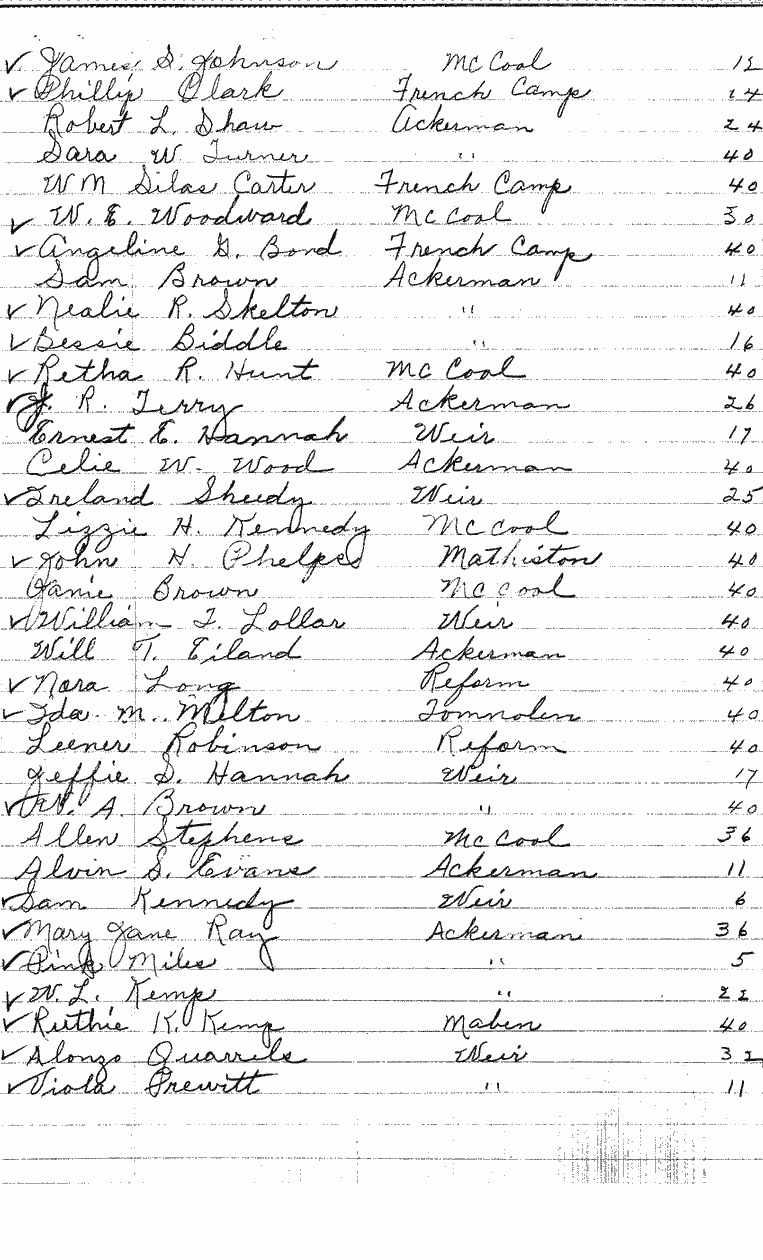 ✓ James S. Johnson McCool 12
✓ Phillip Clark French Camp 14
Robert L. Shaw Ackerman 24
Sara W. Turner " 40
WM Silas Carter French Camp 40
✓ W. E. Woodward McCool 30
✓ Angeline G. Bond French Camp 40
Sam Brown Ackerman 11
✓ Nealie R. Skelton " 40
✓ Bessie Biddle " 16
✓ Retha R. Hunt McCool 40
✓ J. R. Terry Ackerman 26
Ernest E. Hannah Weir 17
Celie W. Wood Ackerman 40
✓ Ireland Sheedy Weir 25
Lizzie H. Kennedy McCool 40
✓ John H. Phelps Mathiston 40
Janie Brown McCool 40
✓ William T. Lollar Weir 40
Will T. Eiland Ackerman 40
✓ Nora Long Reform 40
✓ Ida M. Milton Tomnolen 40
Leener Robinson Reform 40
Jeffie S. Hannah Weir 17
✓ W. A. Brown " 40
Allen Stephens McCool 36
Alvin S. Evans Ackerman 11
✓ Sam Kennedy Weir 6
✓ Mary Jane Ray Ackerman 36
✓ Pink Miles " 5
✓ W. L. Kemp " 22
✓ Ruthie K. Kemp Maben 40
✓ Alonzo Quarrels Weir 32
✓ Viola Prewitt " 11